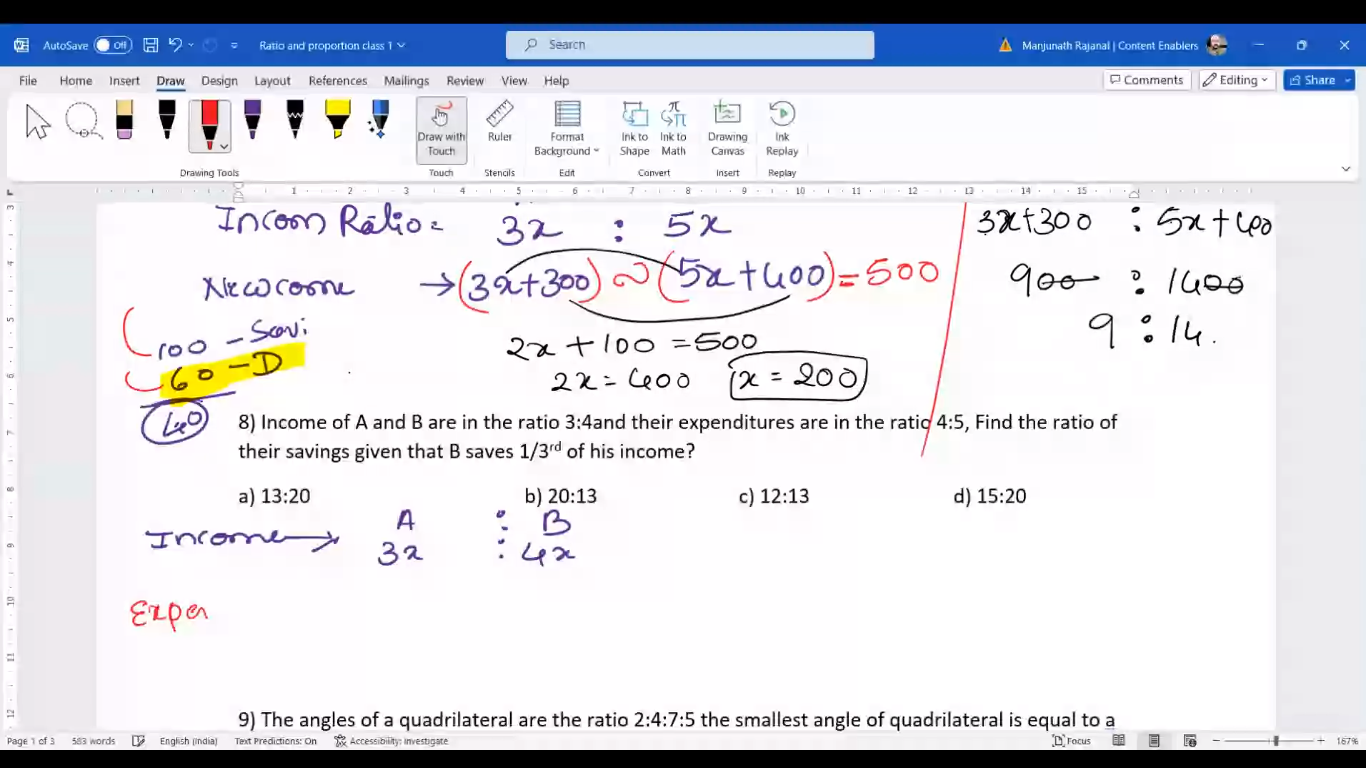 AutoSave Off Ratio and proportion class 1 Search Manjunath Rajanal | Content Enablers
File Home Insert Draw Design Layout References Mailings Review View Help Comments Editing Share
Draw with Touch Ruler Format Background Ink to Shape Ink to Math Drawing Canvas Ink Replay
Drawing Tools Touch Stencils Edit Convert Insert Replay
1 2 3 4 5 6 7 8 9 10 11 12 13 14 15
Incom Ratio = 3x : 5x
3x+300 : 5x+400
→ (3x+300) ~ (5x+400) = 500
900 : 1400
9 : 14.
100 - Savi
2x + 100 = 500
60 - D
2x = 400 x = 200
40
8) Income of A and B are in the ratio 3:4and their expenditures are in the ratio 4:5, Find the ratio of
their savings given that B saves 1/3rd of his income?
a) 13:20 b) 20:13 c) 12:13 d) 15:20
A : B
Income → 3x : 4x
Expen
9) The angles of a quadrilateral are the ratio 2:4:7:5 the smallest angle of quadrilateral is equal to a
Page 1 of 3 583 words English (India) Text Predictions: On Accessibility: Investigate Focus 167%